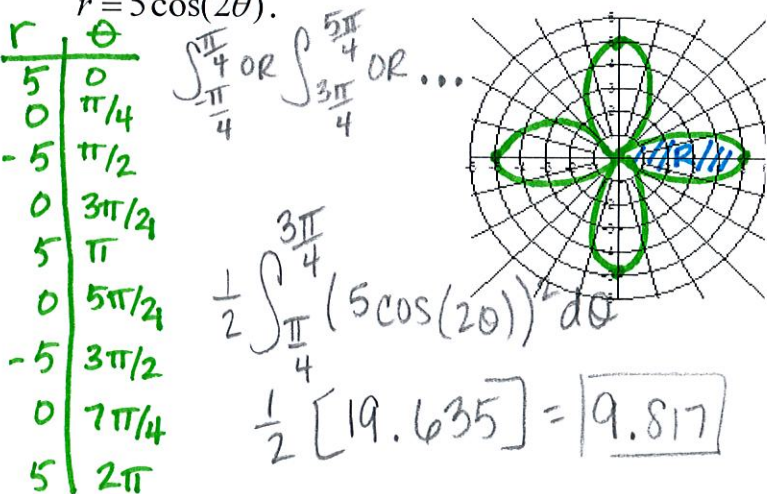 r = 5cos(2θ).
r θ
5 0
0 π/4
-5 π/2
0 3π/4
5 π
0 5π/4
-5 3π/2
0 7π/4
5 2π
∫_{-π/4}^{π/4} OR ∫_{3π/4}^{5π/4} OR ...
R
1/2 ∫_{π/4}^{3π/4} (5cos(2θ))² dθ
1/2 [19.635] = 9.817